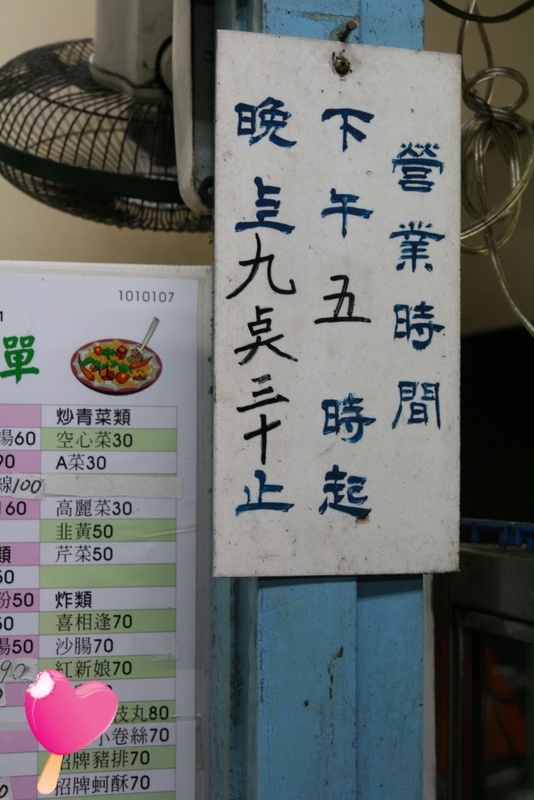 營業時間
下午五時起
晚上九点三十止
1010107
單
炒青菜類
60 空心菜30
90 A菜30
線100
160 高麗菜30
韭黃50
類 芹菜50
50
粉50 炸類
50 喜相逢70
湯50 沙腸70
90 紅新娘70
枝丸80
小卷絲70
招牌豬排70
招牌蚵酥70